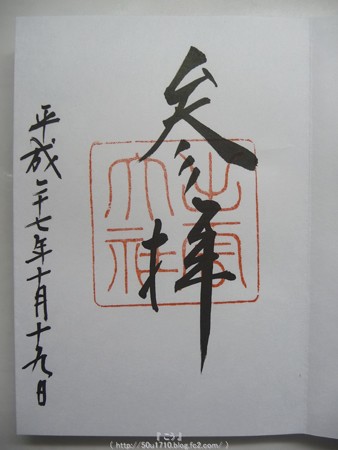 参拝
出雲大神
平成二十七年十月十九日
『こう』
( http://50u1710.blog.fc2.com/ )